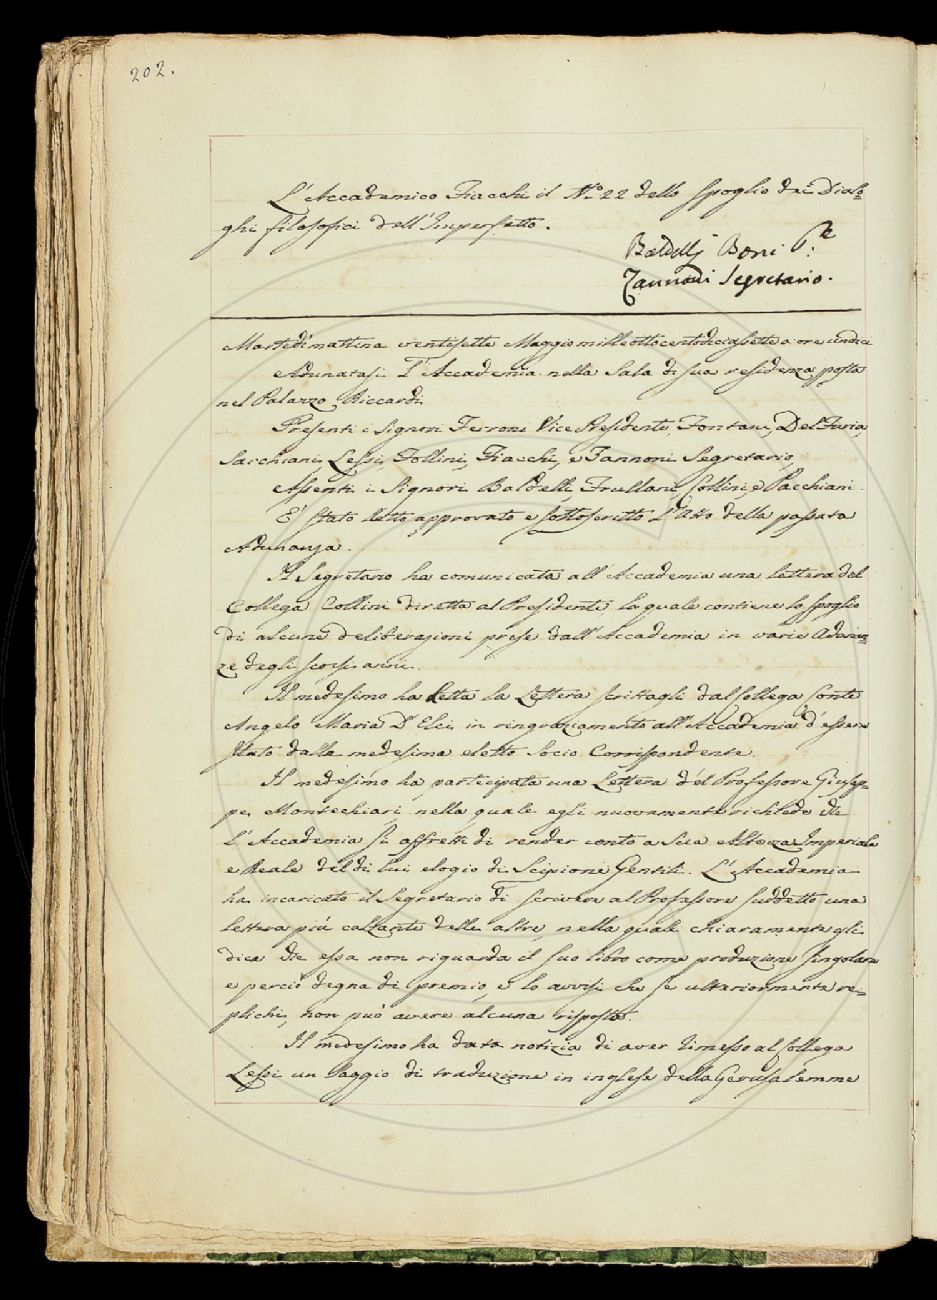 202.
L'Accademico Fiacchi il N.º 22 dello spoglio de' Dialo=
ghi filosofici dell'Imperfetto.
Baldelli Boni P.te
Zannoni Segretario.
Martedì mattina ventisette Maggio mille ottocentodiciassette a ore undici
Adunatasi l'Accademia nella Sala di sua residenza posta
nel Palazzo Riccardi
Presenti i Signori Ferroni Vice Presidente, Fontani, Del Furia,
Sarchiani, Lessi, Follini, Fiacchi, e Zannoni Segretario,
Assenti i Signori Baldelli, Frullani, Collini, e Pacchiani.
E' stato letto approvato e sottoscritto l'Atto della passata
Adunanza.
Il Segretario ha comunicata all'Accademia una lettera del
Collega Collini diretta al Presidente la quale contiene lo spoglio
di alcune deliberazioni prese dall'Accademia in varie Adunan=
ze degli scorsi anni.
Il medesimo ha letta la Lettera scrittagli dal Collega Conte
Angelo Maria D'Elci in ringraziamento all'Accademia d'essere
stato dalla medesima eletto Socio Corrispondente.
Il medesimo ha partecipata una Lettera del Professore Giusep=
pe Montechiari nella quale egli nuovamente richiede che
l'Accademia si affretti di render conto a Sua Altezza Imperiale
e Reale del di lui elogio di Scipione Gentili. L'Accademia
ha incaricato il Segretario di scrivere al Professore suddetto una
lettera più calzante delle altre, nella quale chiaramente gli
dica che essa non riguarda il suo libro come produzione singolare
e perciò degna di premio, e lo avvisi che se ulteriormente re=
plichi, non può avere alcuna risposta.
Il medesimo ha data notizia di aver rimesso al Collega
Lessi un Saggio di traduzione in inglese della Gerusalemme